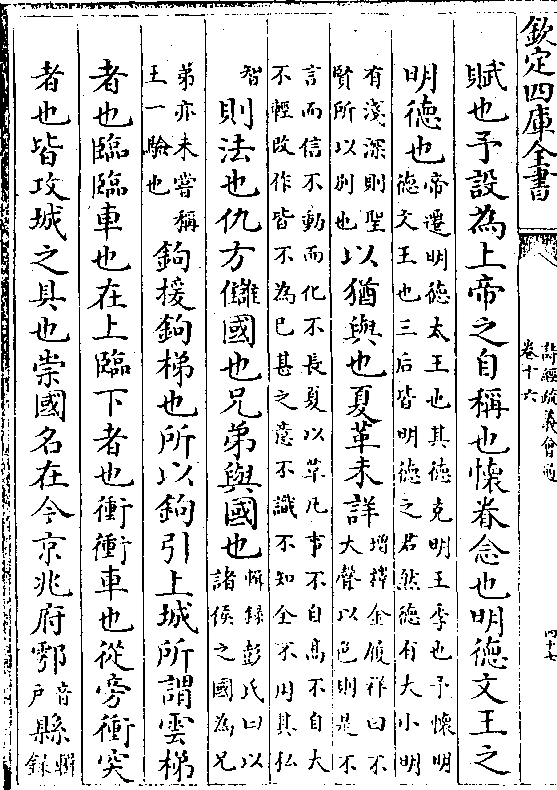 欽定四庫全書
詩經疏義會通
卷十六
四十七
賦也予設為上帝之自稱也懷眷念也明德文王之
明德也
帝遷明德太王也其德克明王季也予懷明
德文王也三后皆明德之君然德有大小明
有淺深則聖
賢所以別也
以猶與也夏革未詳
增釋金履祥曰不
大聲以色則是不
言而信不動而化不長夏以革凡事不自高不自大
不輕改作皆不為已甚之意不識不知全不用其私
智
則法也仇方讎國也兄弟與國也
輯錄彭氏曰以
諸侯之國為兄
弟亦未嘗稱
王一驗也
鉤援鉤梯也所以鉤引上城所謂雲梯
者也臨臨車也在上臨下者也衝衝車也從旁衝突
者也皆攻城之具也崇國名在今京兆府鄠
音
戶
縣
輯
錄